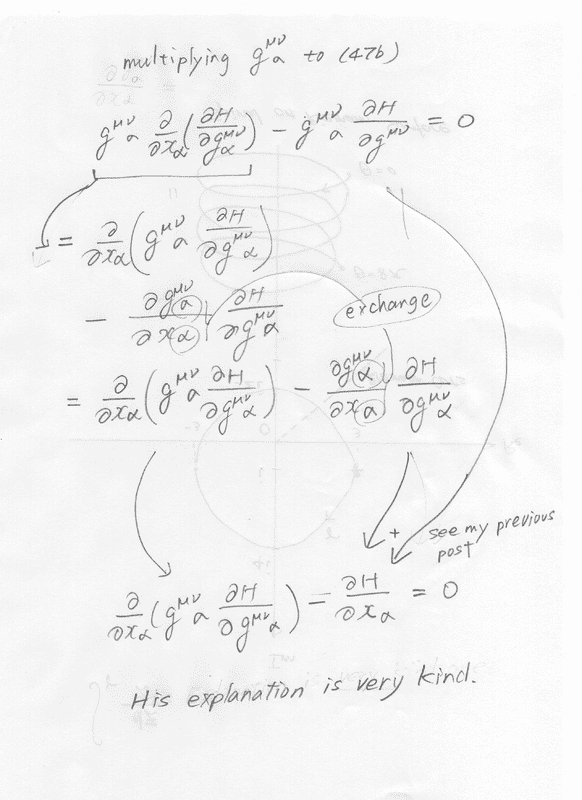 multiplying g^{μν}_a to (47b)
g^{μν}_a ∂/∂x_α (∂H/∂g^{μν}_α) − g^{μν}_a ∂H/∂g^{μν} = 0
= ∂/∂x_α (g^{μν}_a ∂H/∂g^{μν}_α)
− ∂g^{μν}_a/∂x_α ∂H/∂g^{μν}_α exchange
= ∂/∂x_α (g^{μν}_a ∂H/∂g^{μν}_α) − ∂g^{μν}_α/∂x_a ∂H/∂g^{μν}_α
+ see my previous
post
∂/∂x_α (g^{μν}_a ∂H/∂g^{μν}_α) − ∂H/∂x_a = 0
His explanation is very kind.